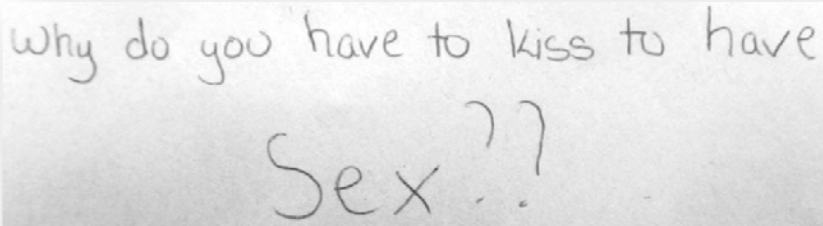 Why do you have to kiss to have
Sex??